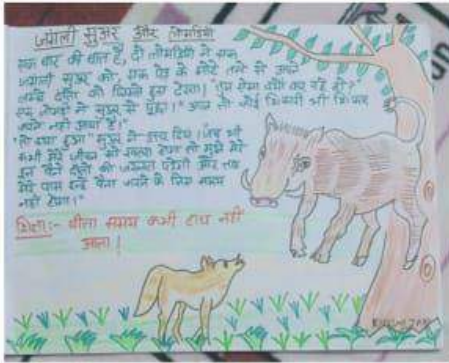 जंगली सुअर और लोमड़ियाँ
एक बार की बात है, दो लोमड़ियों ने एक
जंगली सुअर को, एक पेड़ के मोटे तने से अपने
दाँतों को घिसते हुए देखा। "तुम ऐसा क्यों कर रहे हो?"
एक लोमड़ी ने सुअर से पूछा।" आज तो कोई शिकारी भी शिकार
करने नहीं आया है।"
"तो क्या हुआ" सुअर ने उत्तर दिया। जब भी
कभी मेरे जीवन को खतरा होगा तो मुझे मेरे
इन पैने दाँतों की जरूरत पड़ेगी और तब
मेरे पास इन्हें पैना करने के लिए समय
नहीं होगा।"
शिक्षा:- बीता समय कभी हाथ नहीं
आता!